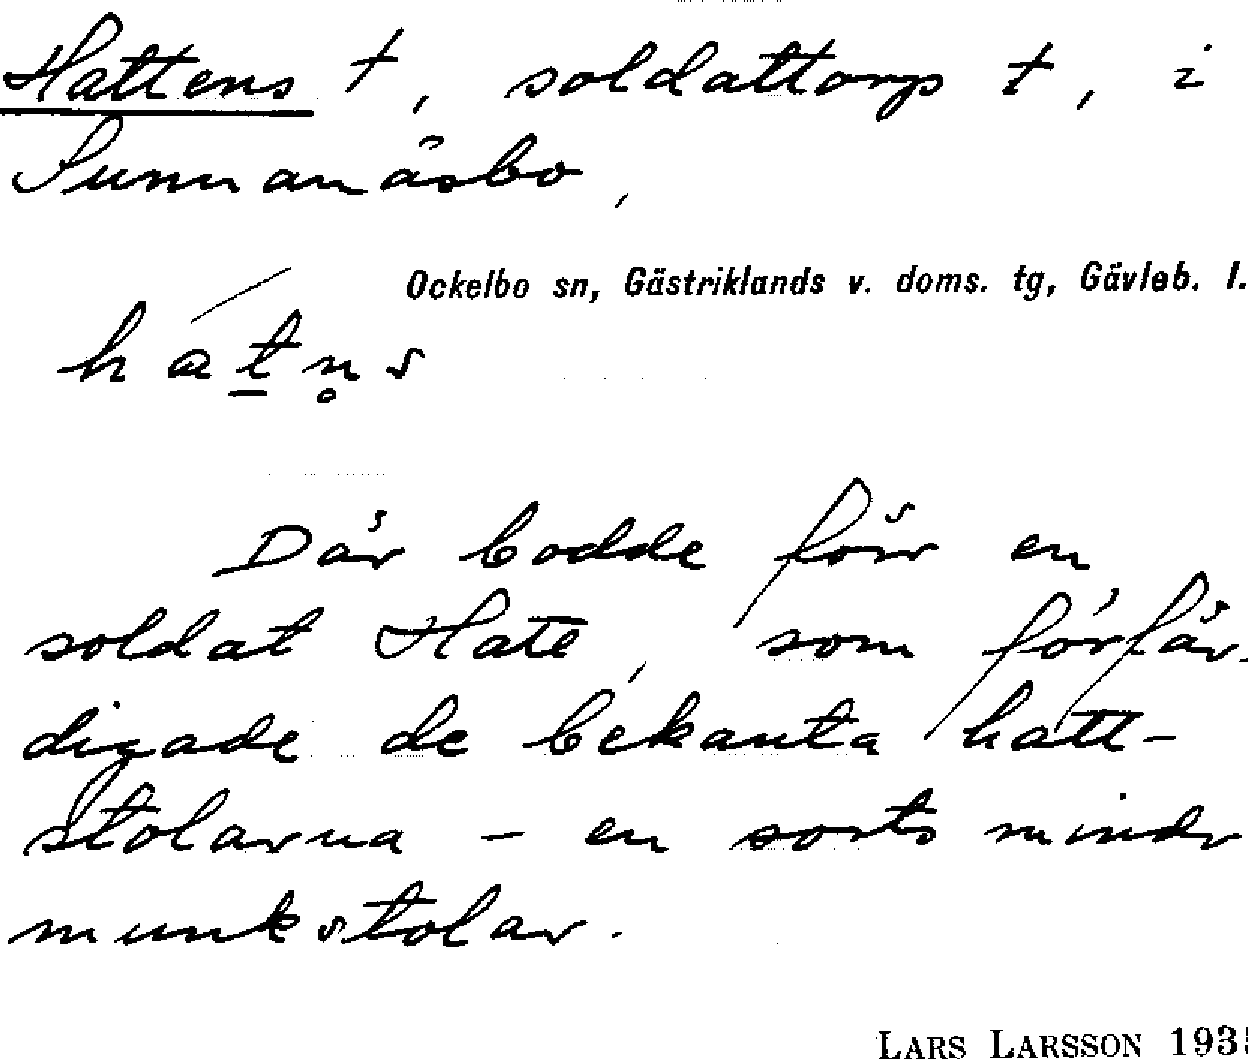 Hattens †, soldattorp †, i
Sunnanåsbo,
Ockelbo sn, Gästriklands v. doms. tg, Gävleb. l.
hát̠n̥s
Där bodde förr en
soldat Hatt, som förfär-
digade de bekanta hatt-
stolarna – en sorts mindr
munkstolar.
LARS LARSSON 1935